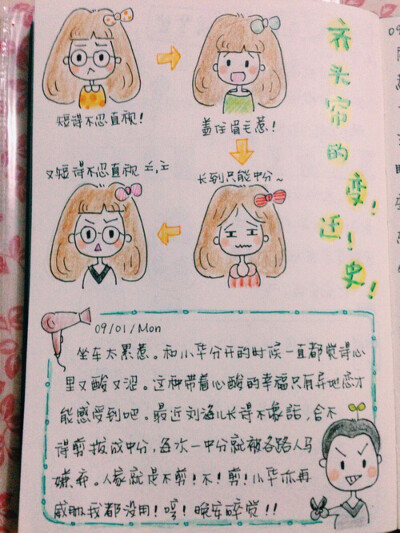 齐头帘的变!迁!史!
短得不忍直视!
盖住眉毛惹!
长到只能中分~
又短得不忍直视
09/01/Mon
坐车太累惹。和小华分开的时候一直都觉得心
里又酸又涩。这种带着心酸的幸福只有异地恋才
能感受到吧。最近刘海儿长得不象話,舍不
得剪拨成中分,每次一中分就被各路人马
嫌弃。人家就是不剪!不!剪!小华你再
威胁我都没用!哼!晚安碎觉!!
09